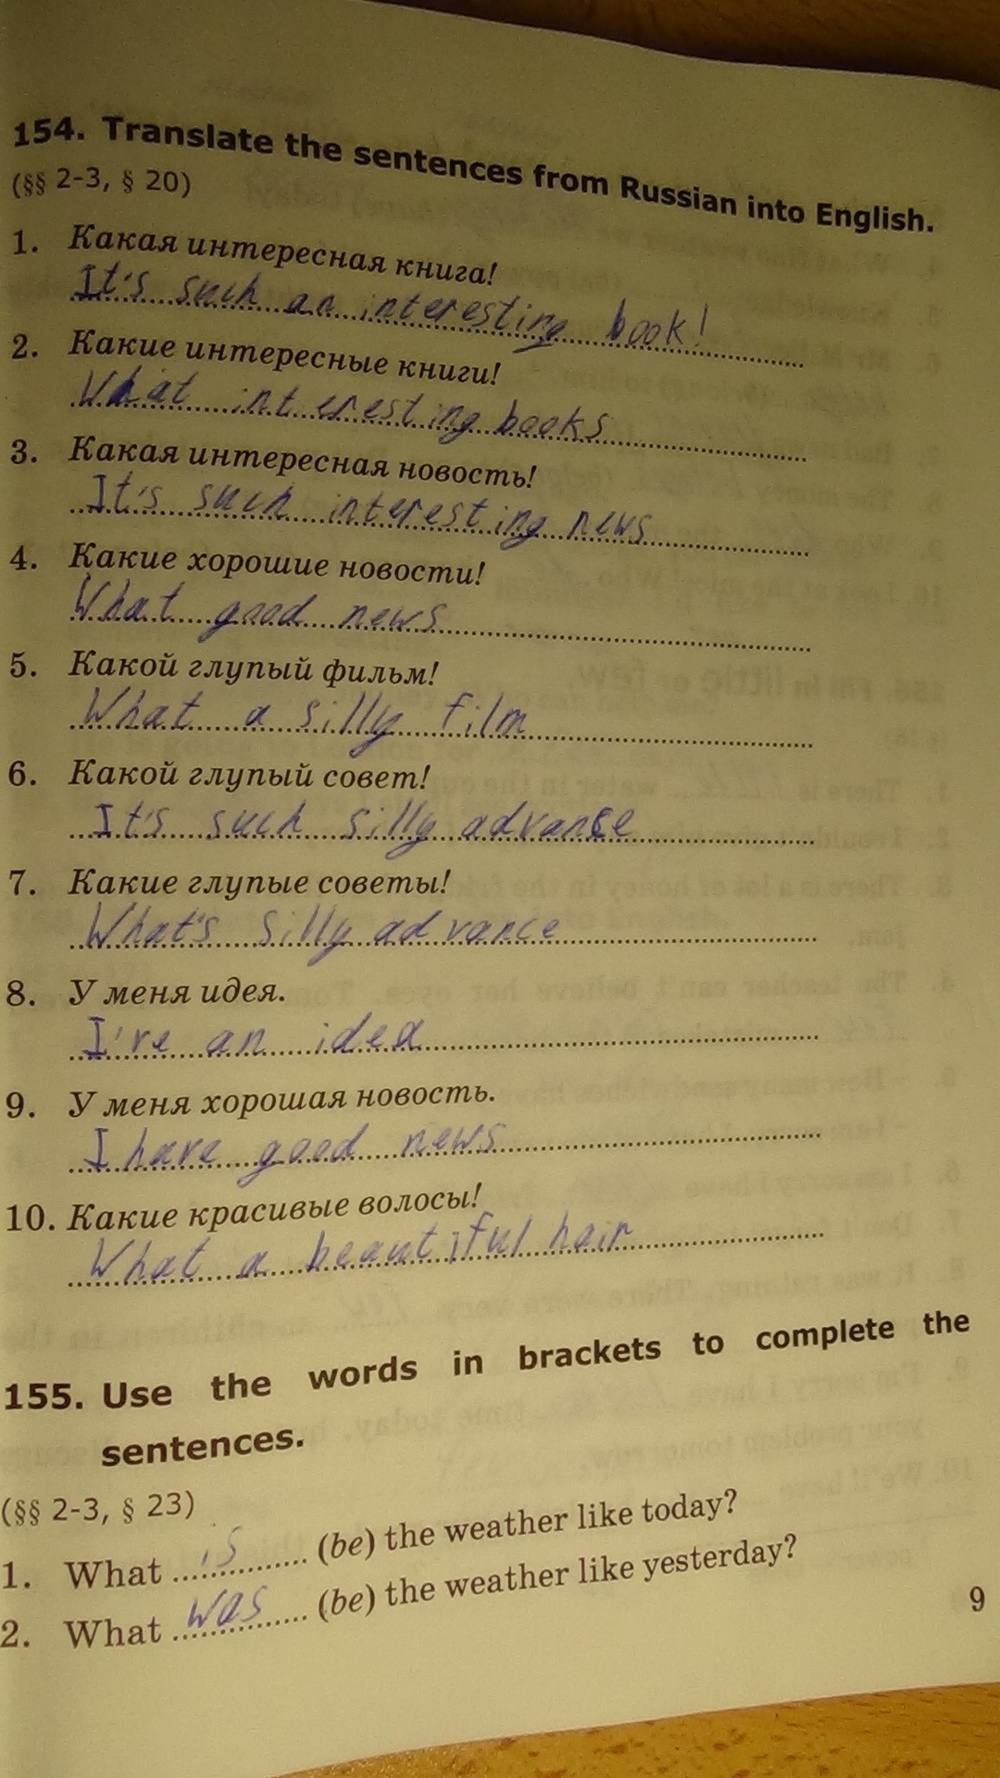 154. Translate the sentences from Russian into English.
(§§ 2-3, § 20)
1. Какая интересная книга!
It's such an interesting book!
2. Какие интересные книги!
What interesting books
3. Какая интересная новость!
It's such interesting news
4. Какие хорошие новости!
What good news
5. Какой глупый фильм!
What a silly film
6. Какой глупый совет!
It's such silly advance
7. Какие глупые советы!
What's silly advance
8. У меня идея.
I've an idea
9. У меня хорошая новость.
I have good news
10. Какие красивые волосы!
What a beautiful hair
155. Use the words in brackets to complete the
sentences.
(§§ 2-3, § 23)
1. What is (be) the weather like today?
2. What was (be) the weather like yesterday?
9